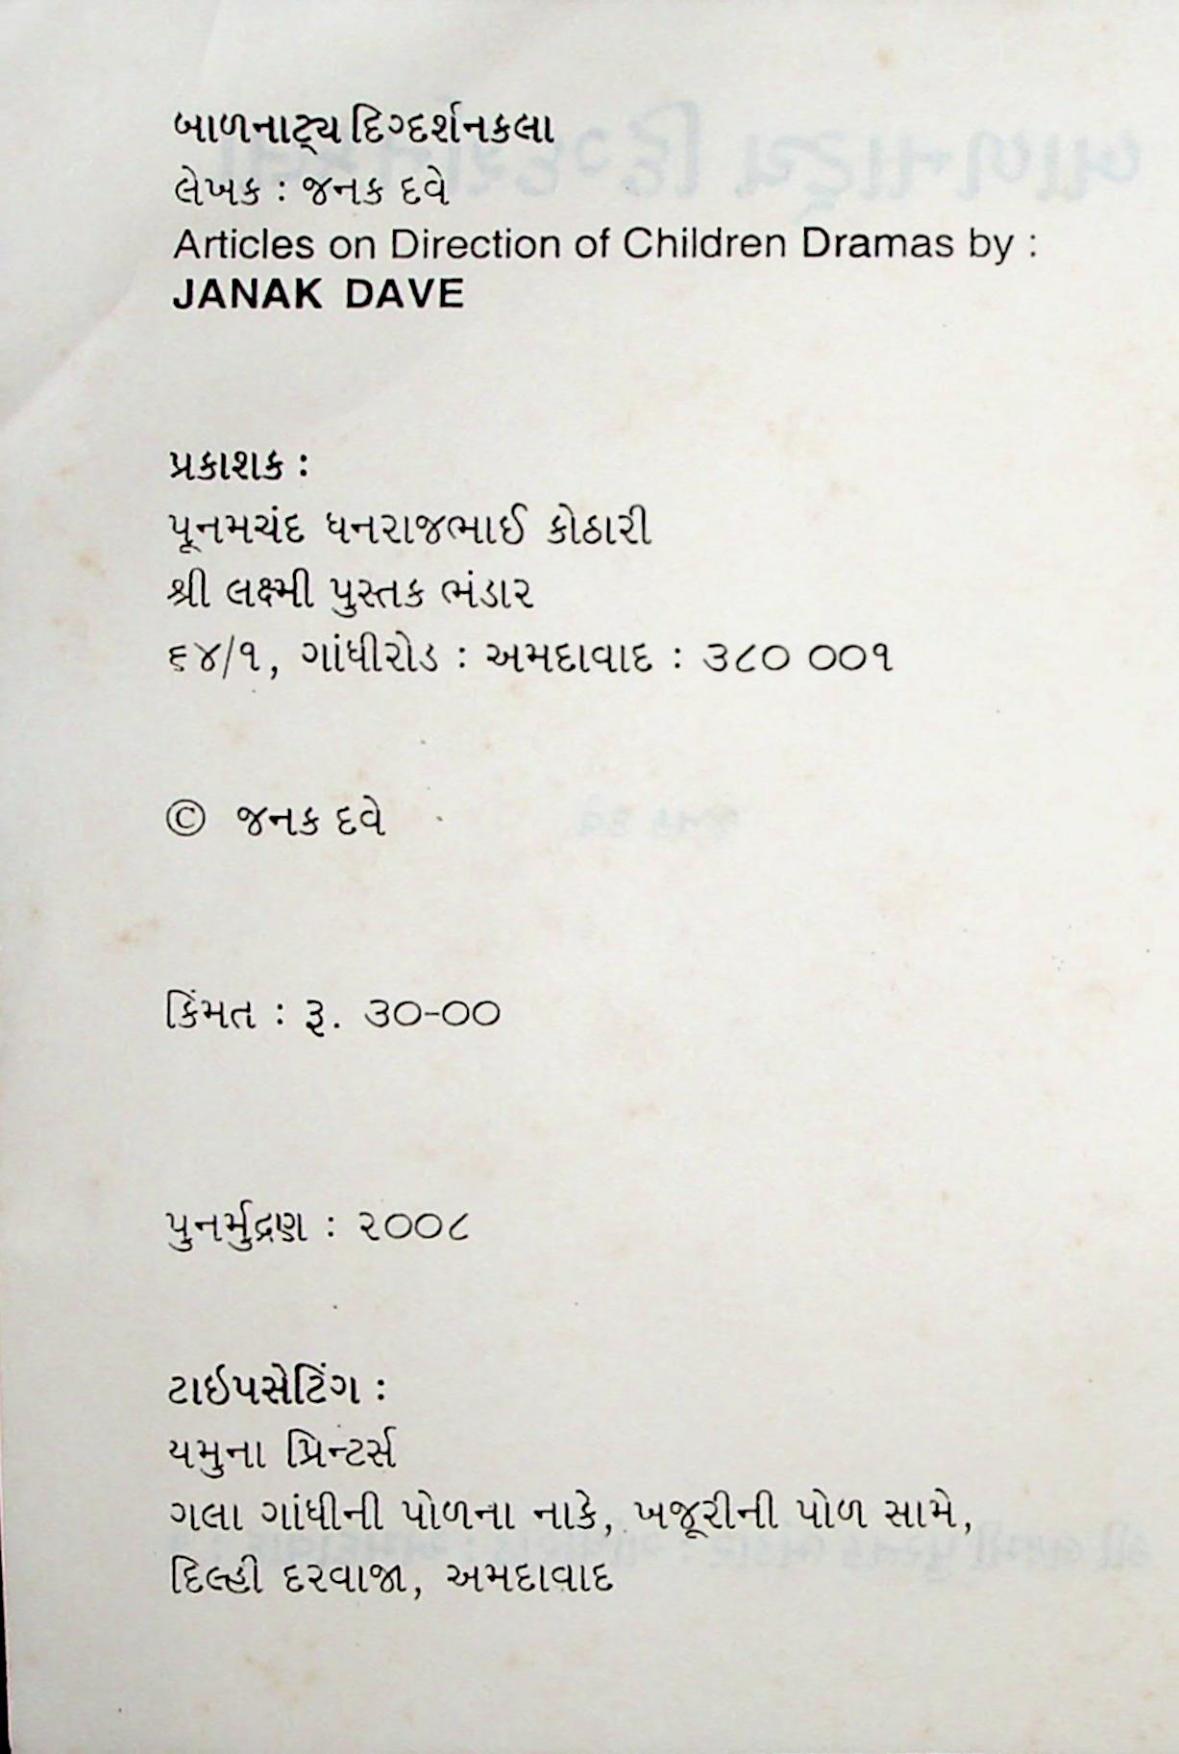 બાળનાટ્ય દિગ્દર્શનકલા
લેખક : જનક દવે
Articles on Direction of Children Dramas by :
JANAK DAVE
પ્રકાશક :
પૂનમચંદ ધનરાજભાઈ કોઠારી
શ્રી લક્ષ્મી પુસ્તક ભંડાર
૬૪/૧, ગાંધીરોડ : અમદાવાદ : ૩૮૦ ૦૦૧
© જનક દવે
કિંમત : રૂ. ૩૦-૦૦
પુનર્મુદ્રણ : ૨૦૦૮
ટાઇપસેટિંગ :
યમુના પ્રિન્ટર્સ
ગલા ગાંધીની પોળના નાકે, ખજૂરીની પોળ સામે,
દિલ્હી દરવાજા, અમદાવાદ